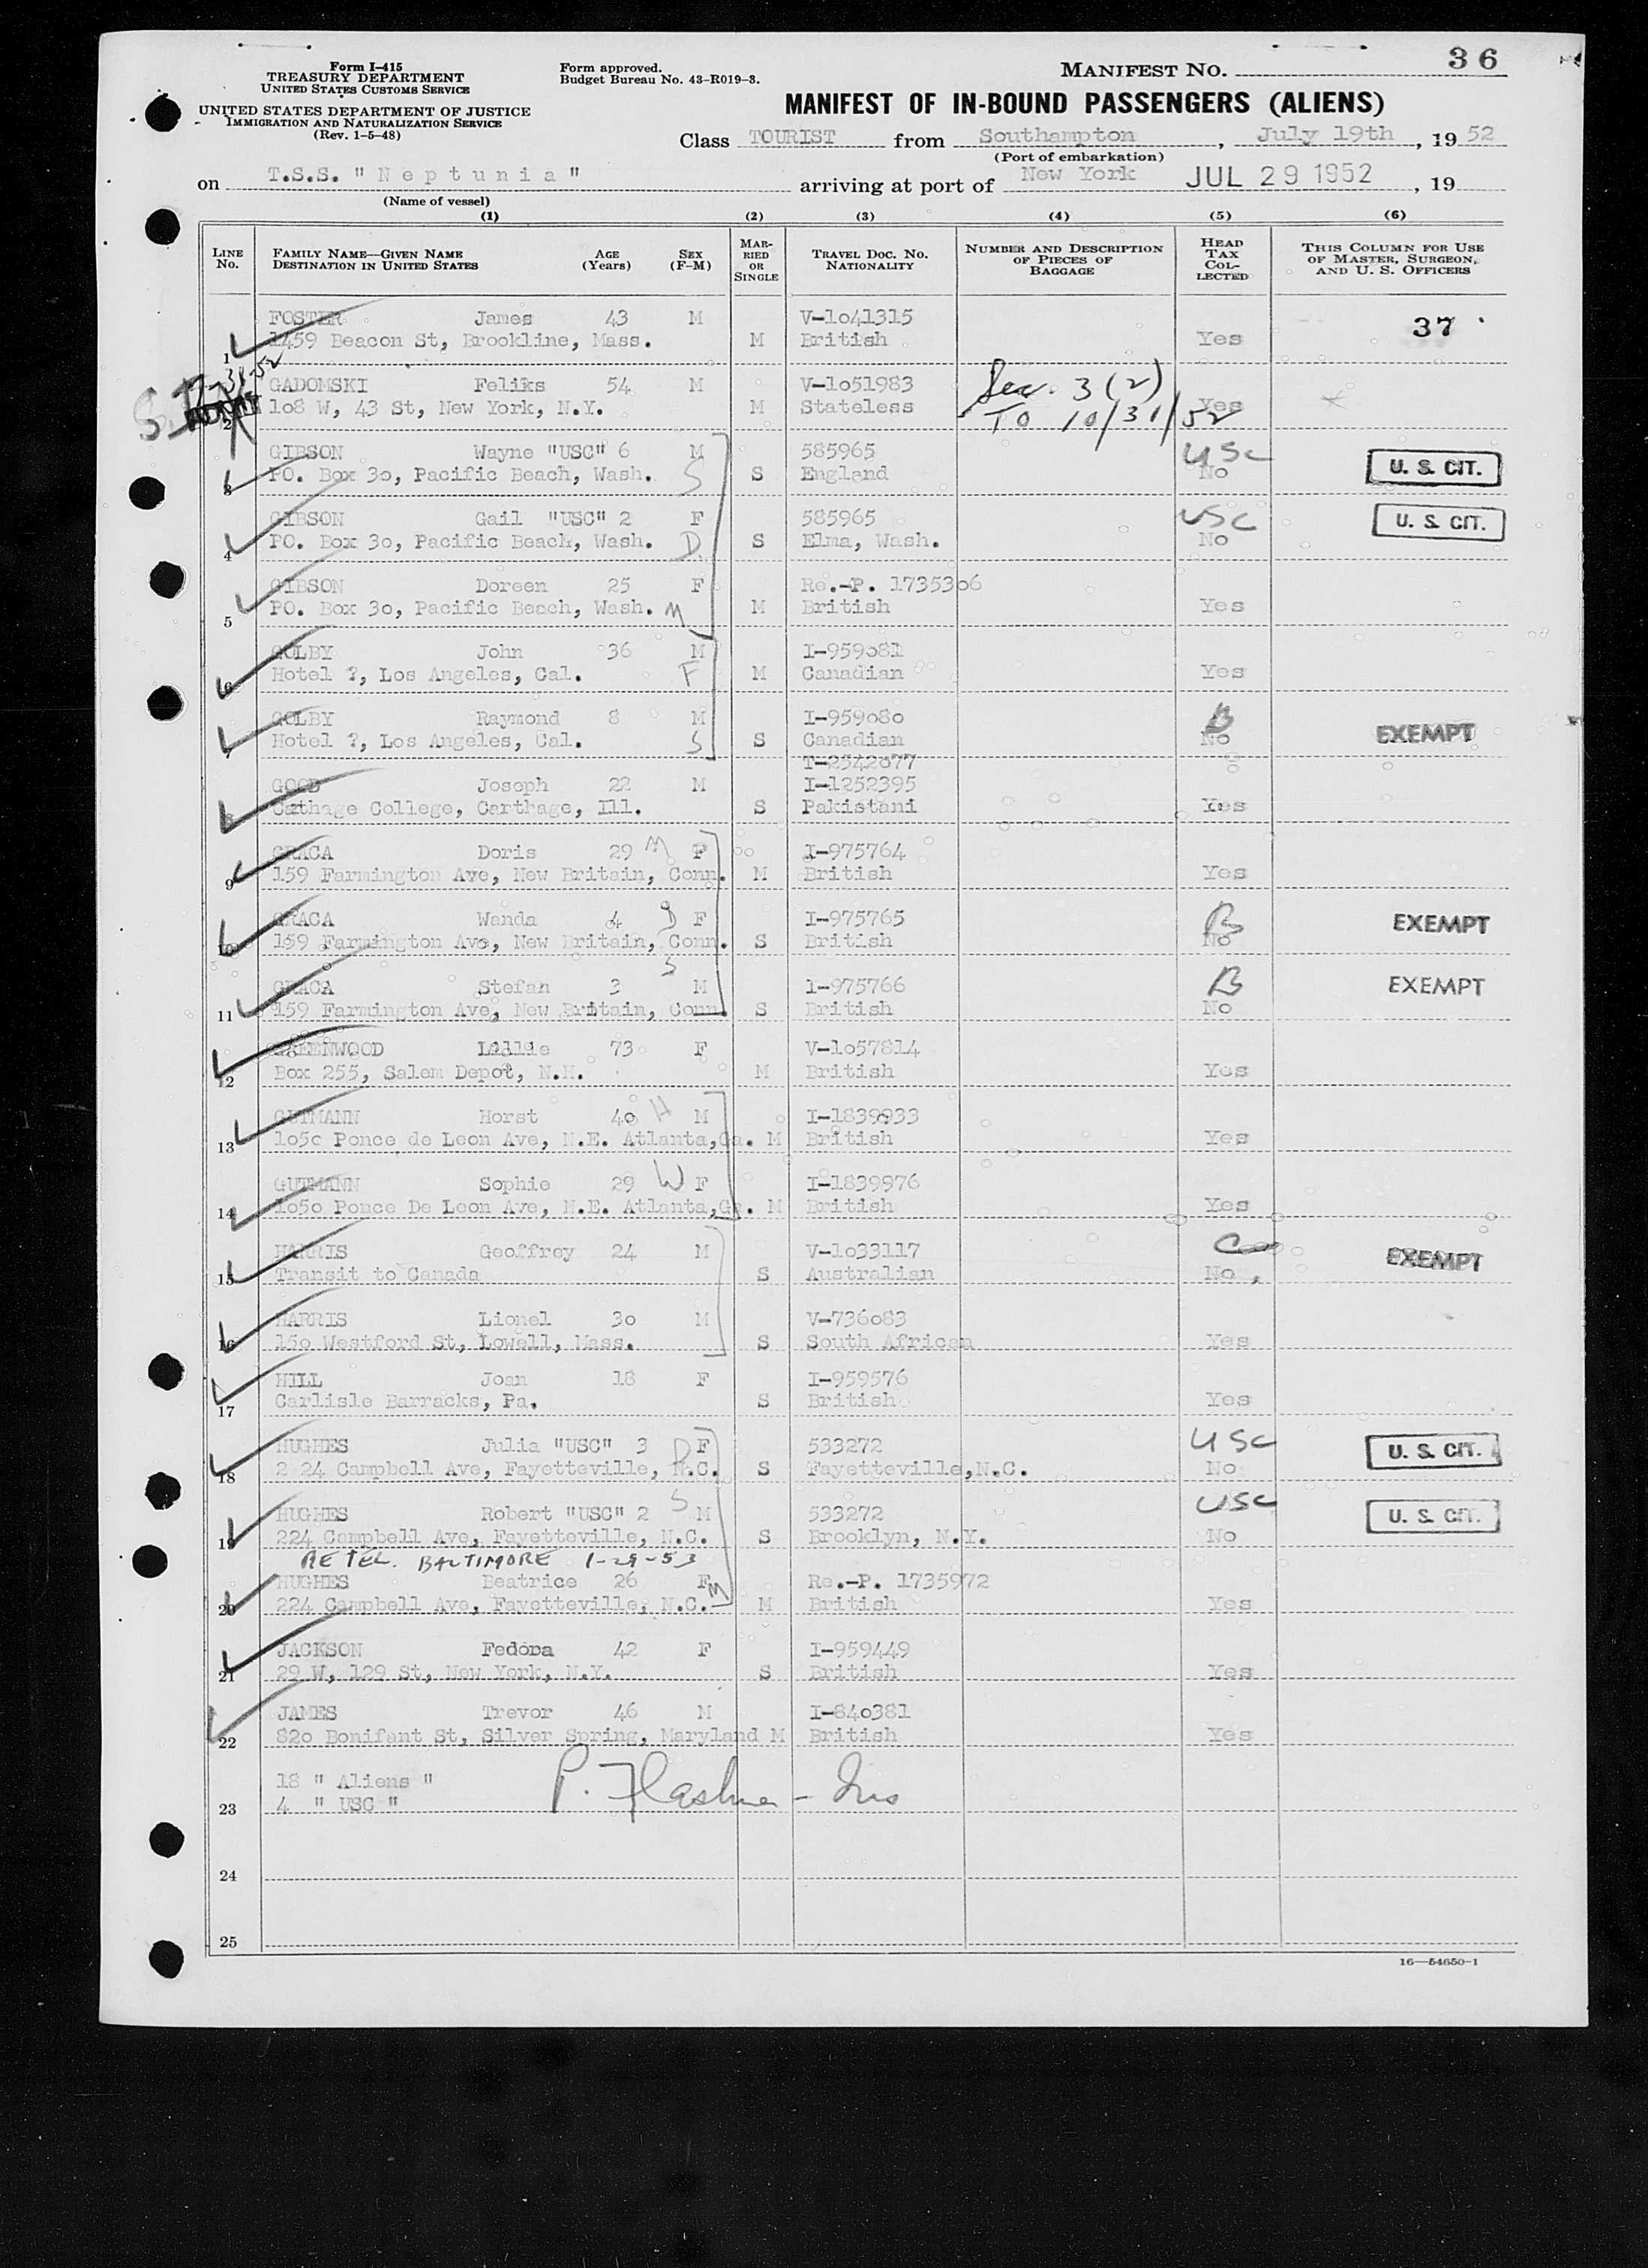 Form I-415
TREASURY DEPARTMENT
UNITED STATES CUSTOMS SERVICE
UNITED STATES DEPARTMENT OF JUSTICE
IMMIGRATION AND NATURALIZATION SERVICE
(Rev. 1-5-48)
Form approved.
Budget Bureau No. 43-R019-3.
MANIFEST NO. 36
MANIFEST OF IN-BOUND PASSENGERS (ALIENS)
Class TOURIST from Southampton, July 19th, 19 52
(Port of embarkation)
on T.S.S. "Neptunia" arriving at port of New York JUL 29 1952, 19
(Name of vessel)
(1) (2) (3) (4) (5) (6)
LINE No. FAMILY NAME—GIVEN NAME DESTINATION IN UNITED STATES AGE (Years) SEX (F-M) MARRIED OR SINGLE TRAVEL DOC. NO. NATIONALITY NUMBER AND DESCRIPTION OF PIECES OF BAGGAGE HEAD TAX COLLECTED THIS COLUMN FOR USE OF MASTER, SURGEON, AND U. S. OFFICERS
FOSTER James 43 M V-1o41315 37
1 1459 Beacon St, Brookline, Mass. M British Yes
7-31-52
GADOMSKI Feliks 54 M V-1o51983 Sec. 3 (2)
2 1o8 W, 43 St, New York, N.Y. M Stateless TO 10/31/52 Yes
GIBSON Wayne "USC" 6 M 585965 USC U. S. CIT.
3 PO. Box 3o, Pacific Beach, Wash. S S England No
GIBSON Gail "USC" 2 F 585965 USC U. S. CIT.
4 PO. Box 3o, Pacific Beach, Wash. D S Elma, Wash. No
GIBSON Doreen 25 F Re.-P. 17353o6
5 PO. Box 3o, Pacific Beach, Wash. M M British Yes
GOLBY John 36 M I-959o81
6 Hotel ?, Los Angeles, Cal. F M Canadian Yes
GOLBY Raymond 8 M I-959o8o B
7 Hotel ?, Los Angeles, Cal. S S Canadian No EXEMPT
T-2542o77
GOOD Joseph 22 M I-1252395
8 Carthage College, Carthage, Ill. S Pakistani Yes
GRACA Doris 29 M F I-975764
9 159 Farmington Ave, New Britain, Conn. M British Yes
GRACA Wanda 4 D F I-975765 B EXEMPT
10 159 Farmington Ave, New Britain, Conn. S British No
S
GRACA Stefan 3 M 1-975766 B EXEMPT
11 159 Farmington Ave, New Britain, Conn. S British No
GREENWOOD Lillie 73 F V-1o57814
12 Box 255, Salem Depot, N.H. M British Yes
GUTMANN Horst 4o H M I-1839933
13 1o5o Ponce de Leon Ave, N.E. Atlanta,Ga. M British Yes
GUTMANN Sophie 29 W F I-1839976
14 1o5o Ponce De Leon Ave, N.E. Atlanta,Ga. M British Yes
HARRIS Geoffrey 24 M V-1o33117 EXEMPT
15 Transit to Canada S Australian No
HARRIS Lionel 3o M V-736o83
16 15o Westford St, Lowell, Mass. S South African Yes
HILL Joan 18 F I-959576
17 Carlisle Barracks, Pa. S British Yes
HUGHES Julia "USC" 3 D F 533272 USC U. S. CIT.
18 2 24 Campbell Ave, Fayetteville, N.C. S Fayetteville,N.C. No
HUGHES Robert "USC" 2 S M 533272 USC U. S. CIT.
19 224 Campbell Ave, Fayetteville, N.C. S Brooklyn, N.Y. No
RE TEL. BALTIMORE 1-29-53
HUGHES Beatrice 26 F M Re.-P. 1735972
20 224 Campbell Ave, Fayetteville, N.C. M British Yes
JACKSON Fedora 42 F I-959449
21 29 W, 129 St, New York, N.Y. S British Yes
JAMES Trevor 46 M I-84o381
22 82o Bonifant St, Silver Spring, Maryland M British Yes
18 " Aliens "
23 4 " USC "
24
25
16—54650-1